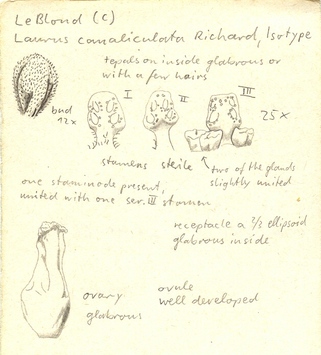 LeBlond (C)
Laurus canaliculata Richard, Isotype
tepals on inside glabrous or
with a few hairs
bud
12x
I
II
III
25x
stamens sterile
two of the glands
slightly united
one staminode present,
united with one ser. III stamen
receptacle a 2/3 ellipsoid
glabrous inside
ovary
glabrous
ovule
well developed